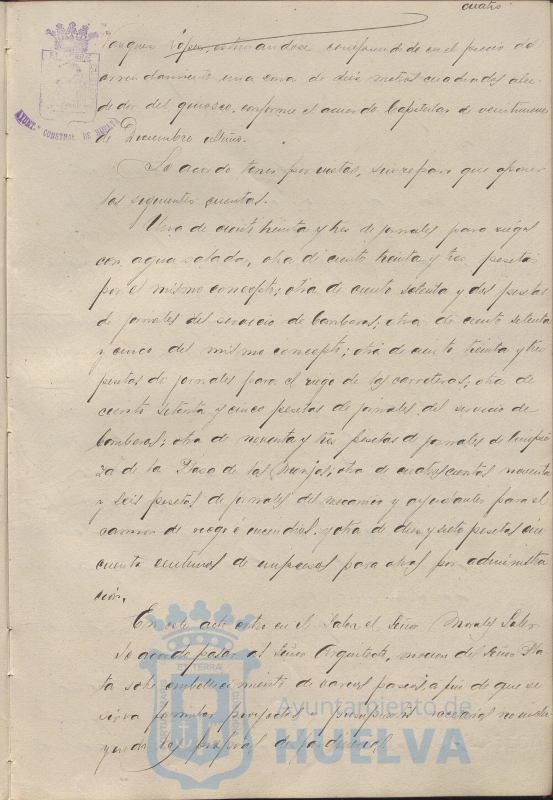 cuatro
López, estimándose comprendido en el precio del
arrendamiento una zona de diez metros cuadrados alre-
dedor del quiosco, conforme el acuerdo Capitular de veintinueve
de Diciembre último.
Se acordó tener por vistas, sin reparo que oponer
las siguientes cuentas.
Una de ciento treinta y tres de jornales para riegos
con agua salada, otra de ciento treinta y tres pesetas
por el mismo concepto; otra de ciento setenta y dos pesetas
de jornales del servicio de bomberos; otra de ciento setenta
y cinco del mismo concepto; otra de ciento treinta y tres
pesetas de jornales para el riego de las carreteras; otra de
ciento setenta y cinco pesetas de jornales del servicio de
bomberos; otra de noventa y tres pesetas de jornales de limpie
za de la Plaza de las Monjas; otra de cuatrocientas noventa
y seis pesetas de jornales del mecánico y ayudantes para el
camión de riego é incendios, y otra de diez y siete pesetas cin
cuenta céntimos de impresos para obras por administra
ción.
En este acto entra en el Salón el Señor Morales
Se acordó pasar al Señor Arquitecto, moción del Señor
sobre embellecimiento de varios paseos, a fin de que se
sirva formular proyectos
AYUNT.º CONSTNAL. DE HUELVA
Ayuntamiento de
HUELVA